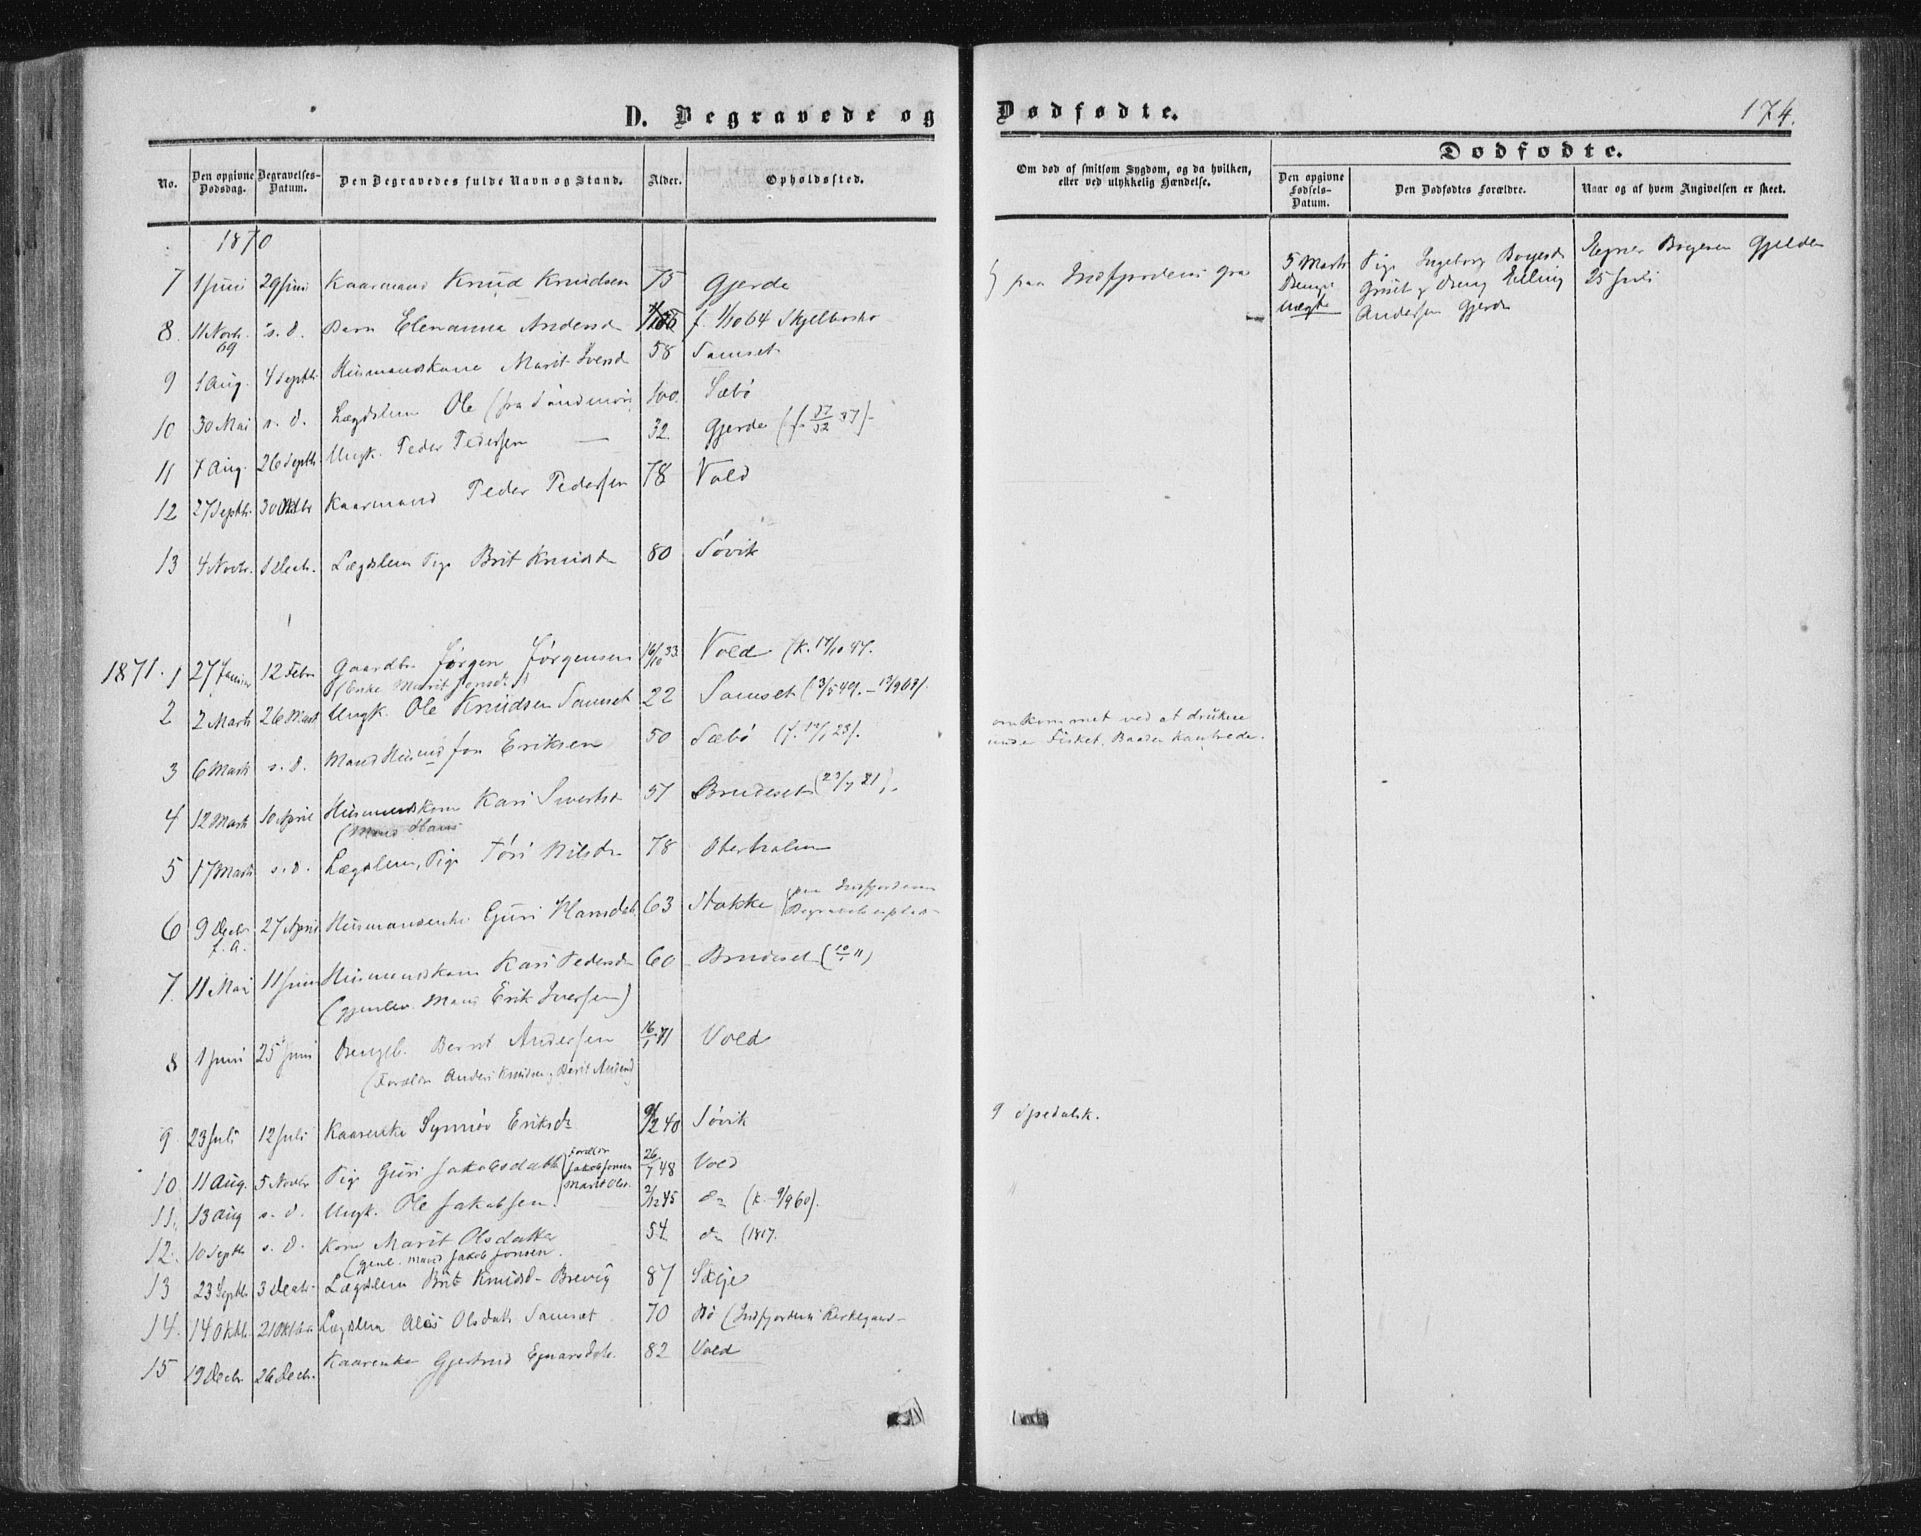 D. Begravede og Dødfødte.
174.
No.
Den opgivne Dødsdag.
Begravelses-Datum.
Den Begravedes fulde Navn og Stand.
Alder.
Opholdssted.
Om død af smitsom Sygdom, og da hvilken, eller ved ulykkelig Hændelse.
Dødfødte.
Den opgivne Fødsels-Datum.
Den Dødfødtes Forældre.
Naar og af hvem Angivelsen er skeet.
1870
7 1 Juni 29 Juni Kaarmand Knud Knudsen 75 Gjerde
5 Marts Pige Ingeborg Boyesd
25 Juli
Andersen Gjerde
8. 11 Novbr. 69 s. d. Barn Elenanna Andersd f. 1/10 64
9 1 Aug. 4 Septbr. Husmandskone Marit Iversd 58 Samset
10 30 Mai s. d. Lægdslem Ole (fra Søndmør 100. Sæbø
11 7 Aug. 26 Septbr. Ungk. Peder Pedersen 32. Gjerde
12 27 Septbr. 30 Oktbr Kaarmand Peder Pedersen 78 Vold
13 4 Novbr. 1 Decbr. Lægdslem Pige Brit Knudsd 80 Søvik
1871. 1 27 Januar 12 Febr Gaardbr Jørgen Jørgensen 16/10 33. Vold (k. 17/10 47.
(Enke Marit Jonsd.)
2 2 Marts 26 Marts Ungk. Ole Knudsen Samset 22 Samset
3 6 Marts s. d. Mand Husmd Jon Eriksen 50 Sæbø
omkommet ved at drukne
under Fisket, Baaden kantrede.
4 12 Marts 10 April Husmandskone Kari Sivertsd 51 Brudeset
(Mand Hans
5 17 Marts s. d. Lægdslem, Pige Tøri Nilsd 78
6 9 Decbr f. A. 27 April Husmandsenke Guri Hansdatt 63 Stokke (paa Indfjordens
Begravelsesplads
7. 11 Mai 11 Juni Husmandskone Kari Pedersd 60 Brudeset
(gjenlev. Mand Erik Iversen)
8 1 Juni 25 Juni Drengb. Bernt Andersen 16/1 71 Vold
(Forældre Anders Knudsen og Berit
9 23 Juli 12 Juli Kaarenke Synnøv Eriksd 40 Søvik
9 spedalsk.
10 11 Aug. 5 Novbr Pige Guri Jakobsdatt (Forældre Jakob Jonsen Marit Olsd. 26/7 48 Vold
11. 13 Aug s. d. Ungk. Ole Jakobsen 2/12 45 do (k. 9/9 60).
12. 10 Septbr s. d. Kone Marit Olsdatter 54. do (1817.
(gjenl. Mand Jakob Jonsen.
13 23 Septbr 3 Decbr. Lægdslem Brit Knudsd- Brevig 87
14. 14 Oktbr. 21 Oktbr Lægdslem Olsdatt. Samset 70 Bø (Indfjordens Kirkegaard-
15 19 Decbr 26 Decbr. Kaarenke Gjertrud 82 Vold